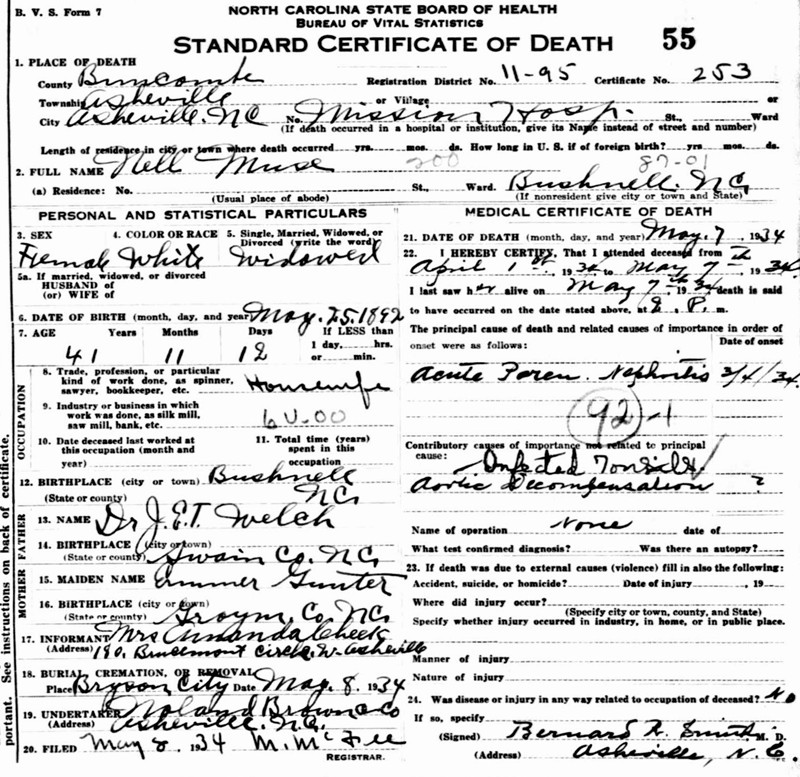 B. V. S. Form 7
NORTH CAROLINA STATE BOARD OF HEALTH
BUREAU OF VITAL STATISTICS
STANDARD CERTIFICATE OF DEATH 55
1. PLACE OF DEATH
County Buncombe Registration District No. 11-95 Certificate No. 253
Township Asheville or Village or
City Asheville, NC No. Mission Hosp. St., Ward
(If death occurred in a hospital or institution, give its Name instead of street and number)
Length of residence in city or town where death occurred yrs. mos. ds. How long in U. S. if of foreign birth? yrs. mos. ds.
2. FULL NAME Nell Muse 200 87-01
(a) Residence: No. St., Ward. Bushnell, NC
(Usual place of abode) (If nonresident give city or town and State)
PERSONAL AND STATISTICAL PARTICULARS
3. SEX 4. COLOR OR RACE 5. Single, Married, Widowed, or
Divorced (write the word)
Female White Widowed
5a. If married, widowed, or divorced
HUSBAND of
(or) WIFE of
6. DATE OF BIRTH (month, day, and year) May 25. 1892
7. AGE Years Months Days If LESS than
1 day, hrs.
41 11 12 or min.
OCCUPATION
8. Trade, profession, or particular
kind of work done, as spinner,
sawyer, bookkeeper, etc. Housewife
9. Industry or business in which
work was done, as silk mill,
saw mill, bank, etc. 6U-00
10. Date deceased last worked at
this occupation (month and
year)
11. Total time (years)
spent in this
occupation
12. BIRTHPLACE (city or town) Bushnell
(State or county) NC
FATHER
13. NAME Dr J.E.T. Welch
14. BIRTHPLACE (city or town)
(State or county) Swain Co. NC
MOTHER
15. MAIDEN NAME Emmer Gunter
16. BIRTHPLACE (city or town)
(State or county) Co. NC
17. INFORMANT Mrs Amanda Cheek
(Address) 180. Circle. W. Asheville
18. BURIAL, CREMATION, OR REMOVAL
Place Bryson City Date May. 8. 1934
19. UNDERTAKER Noland Brown & Co
(Address) Asheville. N.C.
20. FILED May 8. 1934 M. McFee
REGISTRAR.
MEDICAL CERTIFICATE OF DEATH
21. DATE OF DEATH (month, day, and year) May. 7 1934
22. I HEREBY CERTIFY, That I attended deceased from
April 1st. 1934 to May 7th. 1934.
I last saw her alive on May 7th 1934 death is said
to have occurred on the date stated above, at P. m.
The principal cause of death and related causes of importance in order of
onset were as follows: Date of onset
Acute Paren. Nephritis 3/4/34.
92-1
Contributory causes of importance not related to principal
cause: Infected Tonsils
Aortic Decompensation ?
Name of operation None date of
What test confirmed diagnosis? Was there an autopsy?
23. If death was due to external causes (violence) fill in also the following:
Accident, suicide, or homicide? Date of injury , 19
Where did injury occur?
(Specify city or town, county, and State)
Specify whether injury occurred in industry, in home, or in public place.
Manner of injury
Nature of injury
24. Was disease or injury in any way related to occupation of deceased? No
If so, specify
(Signed) Bernard R. Smith M. D.
(Address) Asheville, N. C.
portant. See instructions on back of certificate.